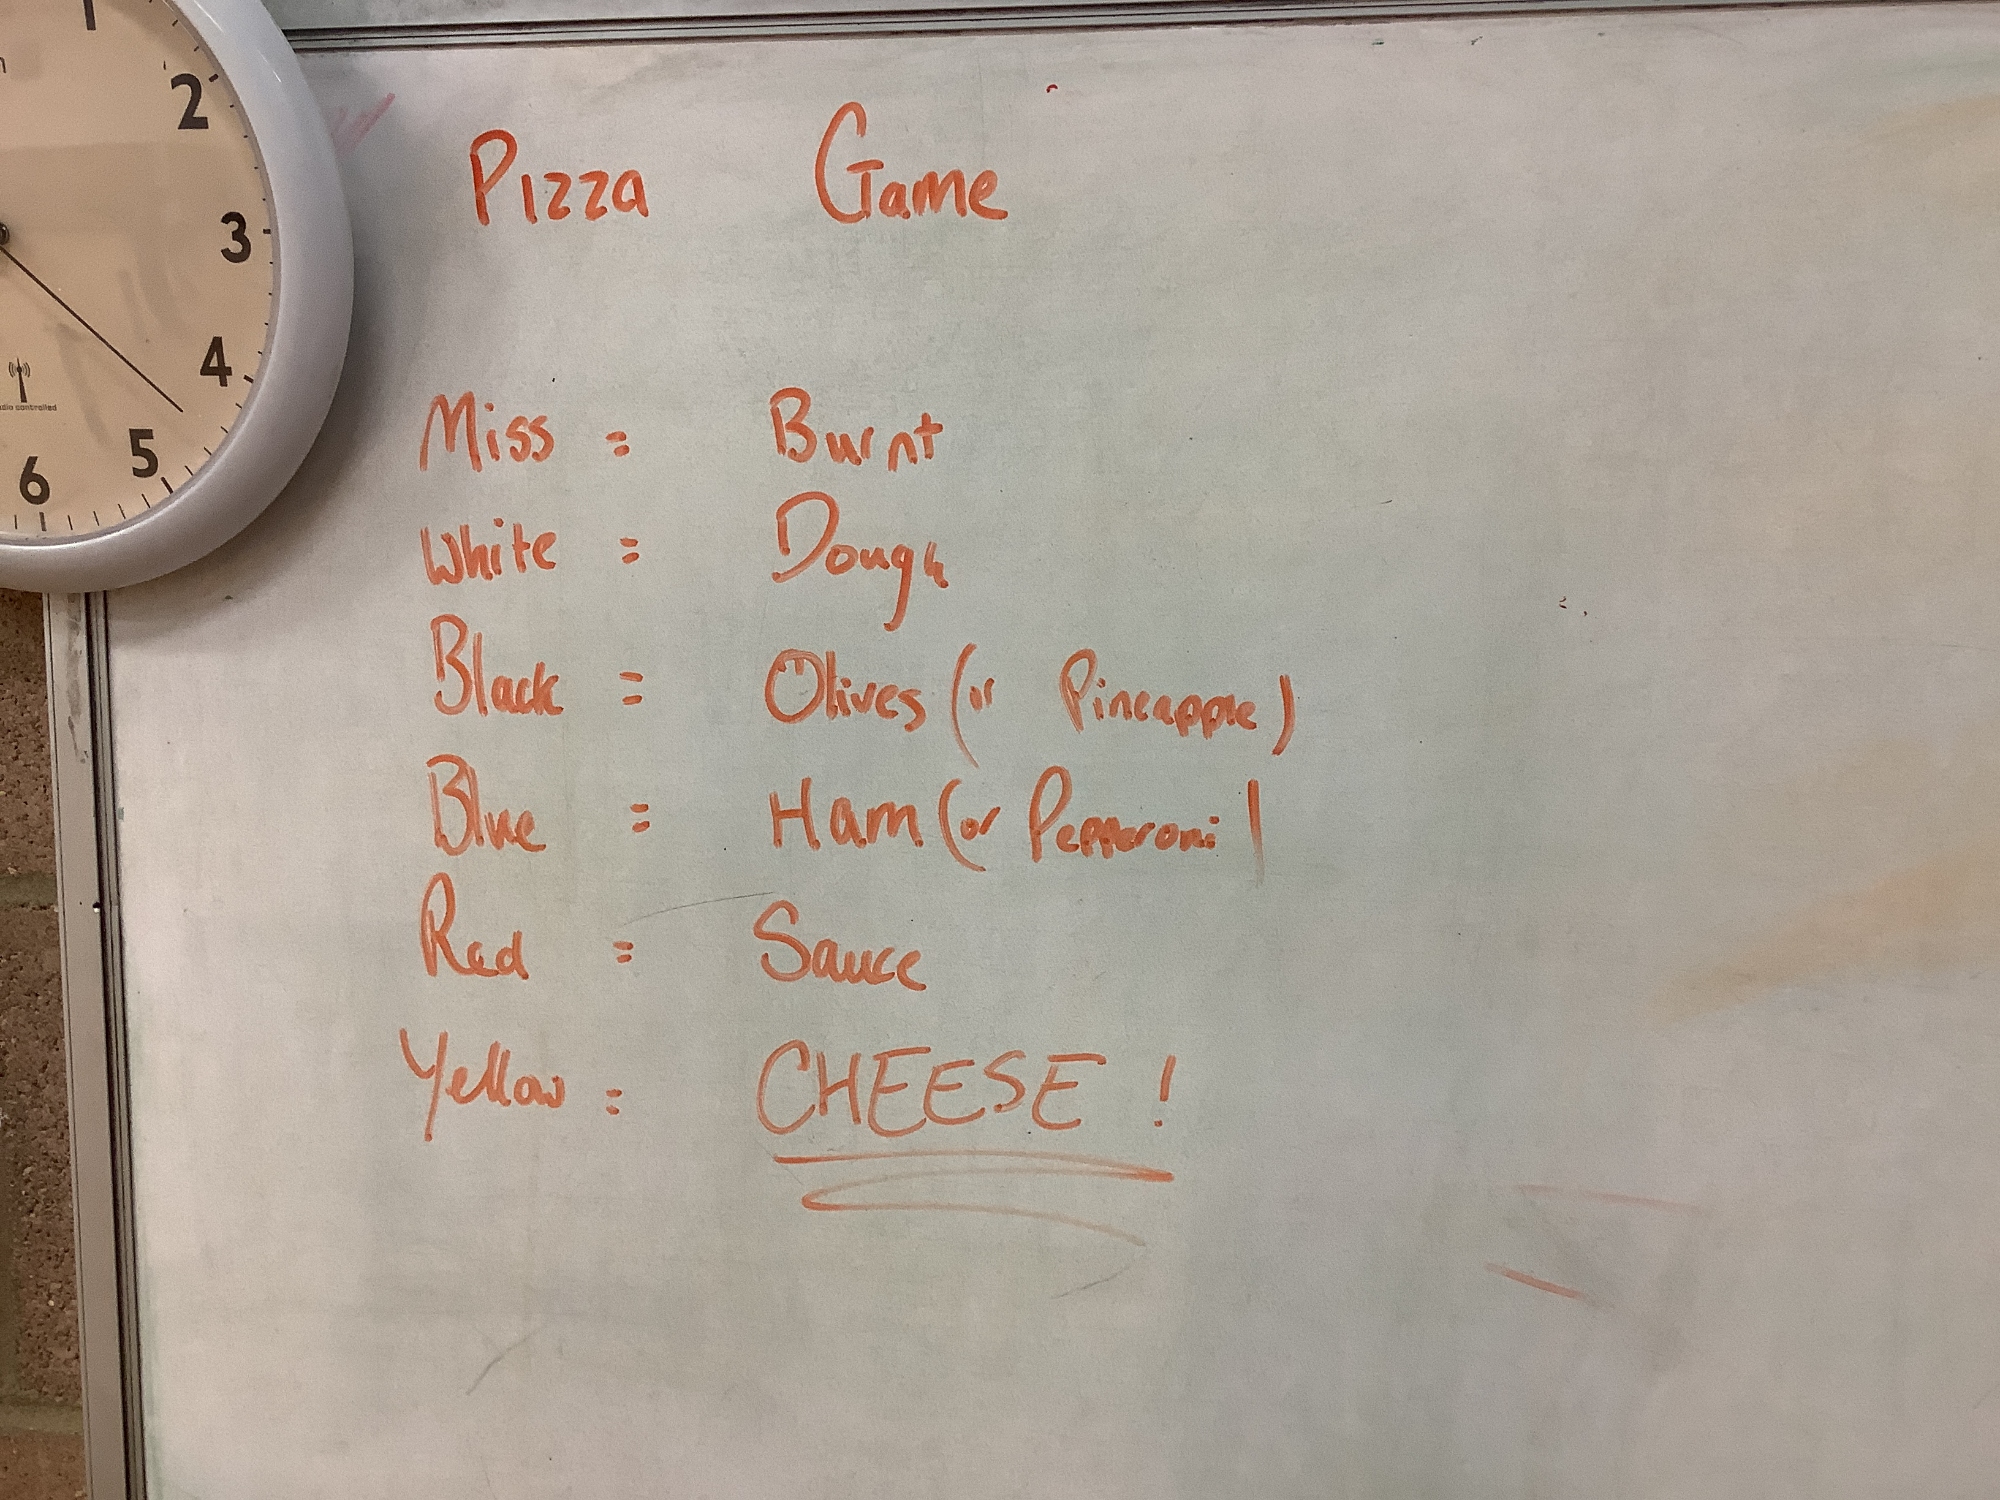 Pizza Game
Miss = Burnt
White = Dough
Black = Olives (or Pineapple)
Blue = Ham (or Pepperoni)
Red = Sauce
Yellow = CHEESE!
1
2
3
4
5
6